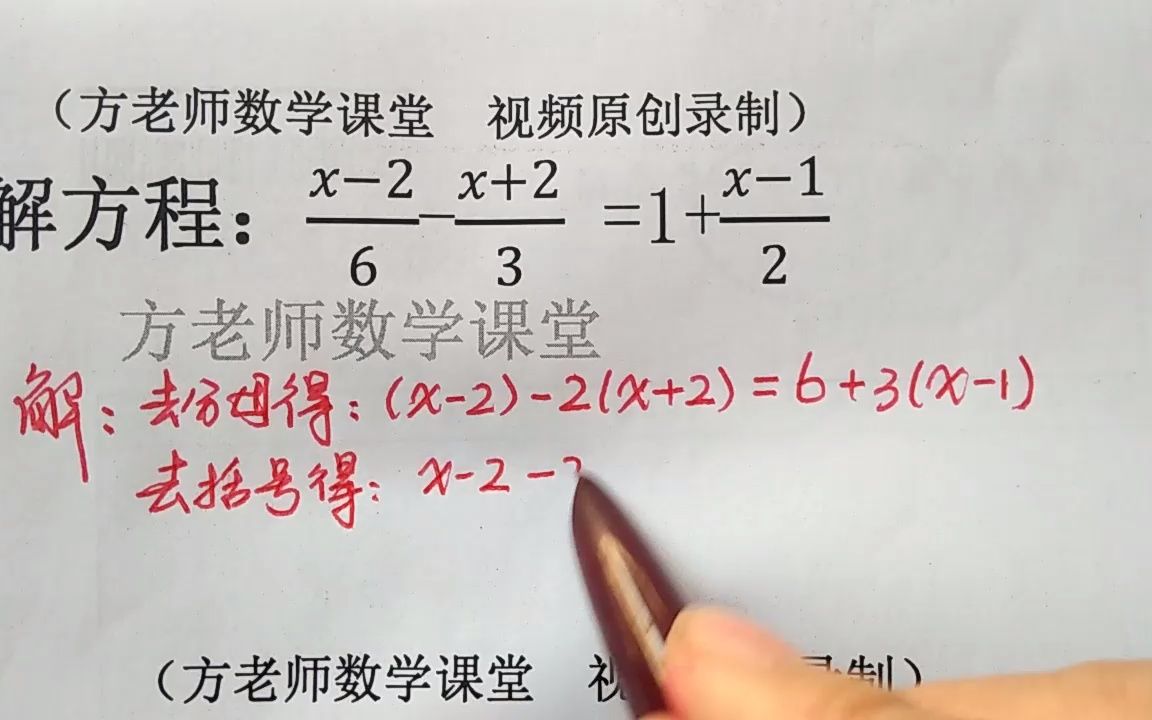 （方老师数学课堂　视频原创录制）
解方程：(x−2)/6−(x+2)/3 =1+(x−1)/2
方老师数学课堂
解：去分母得：(x-2)-2(x+2)=6+3(x-1)
去括号得：x-2-2
（方老师数学课堂　视 录制）